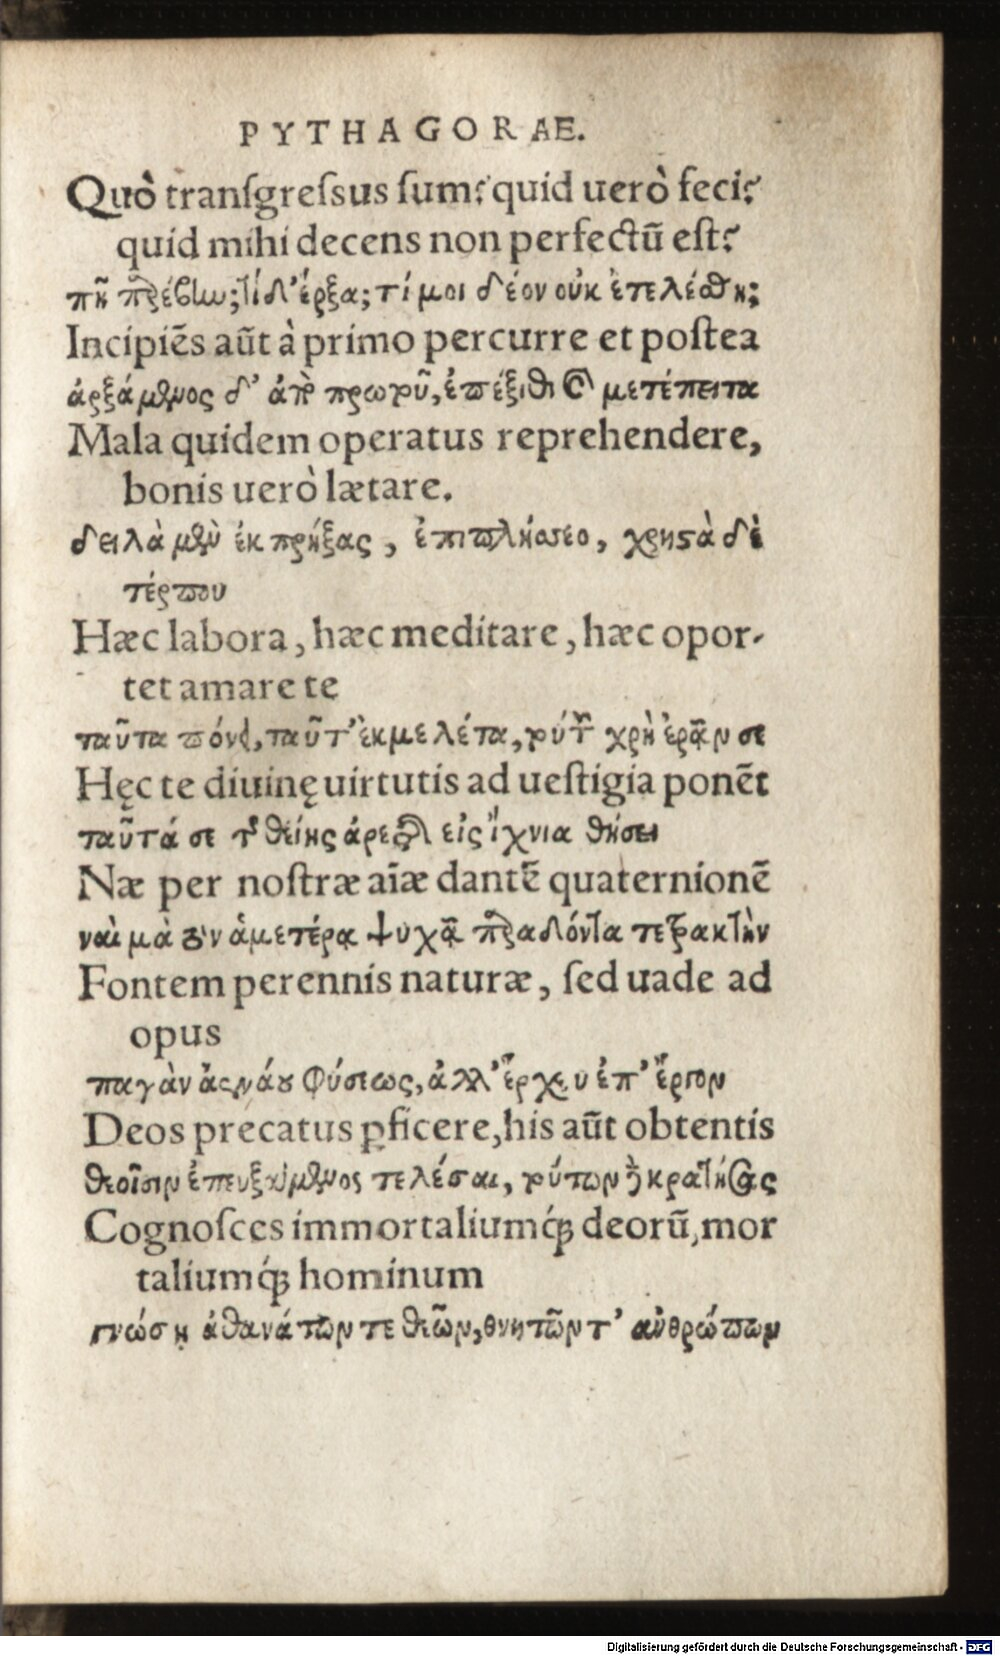 PYTHAGORAE.
Quò transgressus sum? quid uerò feci?
quid mihi decens non perfectũ est?
πῆ παρέβην; τί δ' ἔρξα; τί μοι δέον οὐκ ἐτελέσθη;
Incipiẽs aũt à primo percurre et postea
ἀρξάμενος δ' ἀπὸ πρώτου, ἐπέξιθι καὶ μετέπειτα
Mala quidem operatus reprehendere,
bonis uerò lætare.
δειλὰ μὲν ἐκπρήξας, ἐπιπλήσσεο, χρηστὰ δὲ
τέρπου
Hæc labora, hæc meditare, hæc opor-
tet amare te
ταῦτα πόνει, ταῦτ' ἐκμελέτα, τούτων χρὴ ἐρᾶν σε
Hęc te diuinę uirtutis ad uestigia ponẽt
ταῦτά σε τῆς θείης ἀρετῆς εἰς ἴχνια θήσει
Næ per nostræ aĩæ dantẽ quaternionẽ
ναὶ μὰ τὸν ἁμετέρᾳ ψυχᾷ παραδόντα τετρακτὺν
Fontem perennis naturæ, sed uade ad
opus
παγὰν ἀενάου φύσεως, ἀλλ' ἔρχευ ἐπ' ἔργον
Deos precatus ꝑficere, his aũt obtentis
θεοῖσιν ἐπευξάμενος τελέσαι, τούτων δὲ κρατήσας
Cognosces immortaliumq́ꝫ deorũ, mor
taliumq́ꝫ hominum
γνώσῃ ἀθανάτων τε θεῶν, θνητῶν τ' ἀνθρώπων
Digitalisierung gefördert durch die Deutsche Forschungsgemeinschaft - DFG